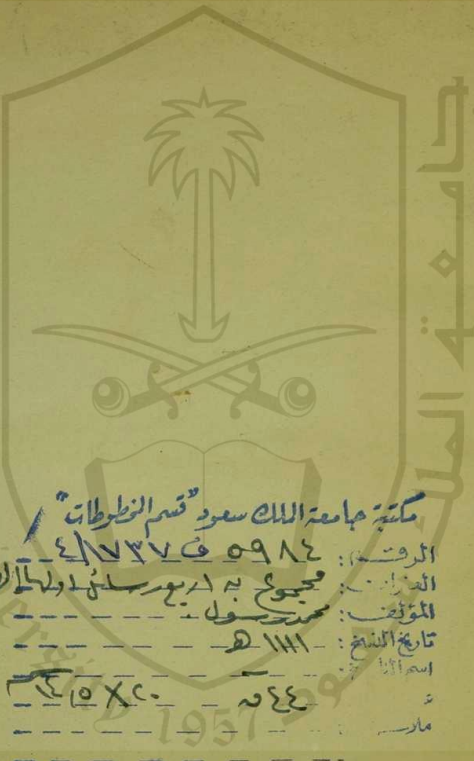 مكتبة جامعة الملك سعود "قسم المخطوطات"
الرقم: ٥٩٨٤ ف ١٧٣٧/٤
العنوان: مجموع به اربع رسائل اولها
المؤلف: محمد رسول
تاريخ النسخ: ١١١١ هـ
اسم الناسخ:
٤٤ ق ٢٠ × ١٤٫٥ سم
جامعة الملك سعود
1957